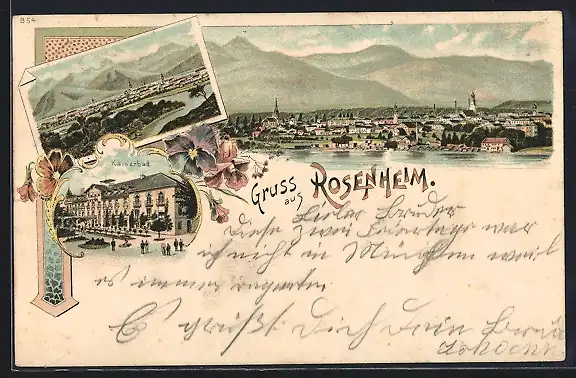 854
Kaiserbad
Gruss aus Rosenheim.
Lieber Bruder
Diese zwei Feiertage war
ich nicht in München weil
es immer
Es grüßt Dich Dein Bruder
Johann